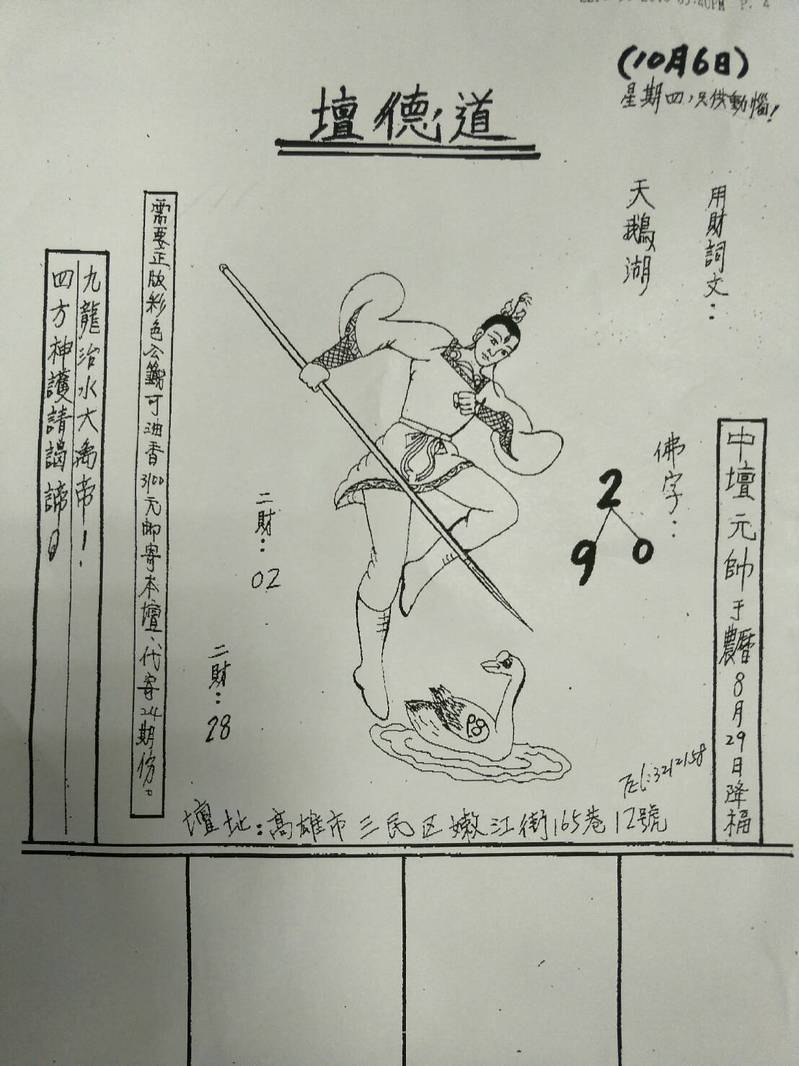 05:40PM P. 4
(10月6日)
星期四，只供動惱！
壇德道
用財詞文：
天鵝湖
佛字：
2
9 0
中壇元帥于農曆8月29日降福
二財：
02
二財：
28
需要正版彩色合籤可油香3100元即寄本壇、代寄24期份。
九龍治水大禹帝！
四方神護請謁諦
Tel:3212158
壇址：高雄市三民区嫩江街165巷12號